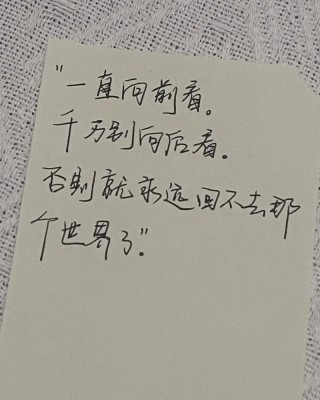 "一直向前看。
千万别向后看。
否则就永远回不去那
个世界了"。